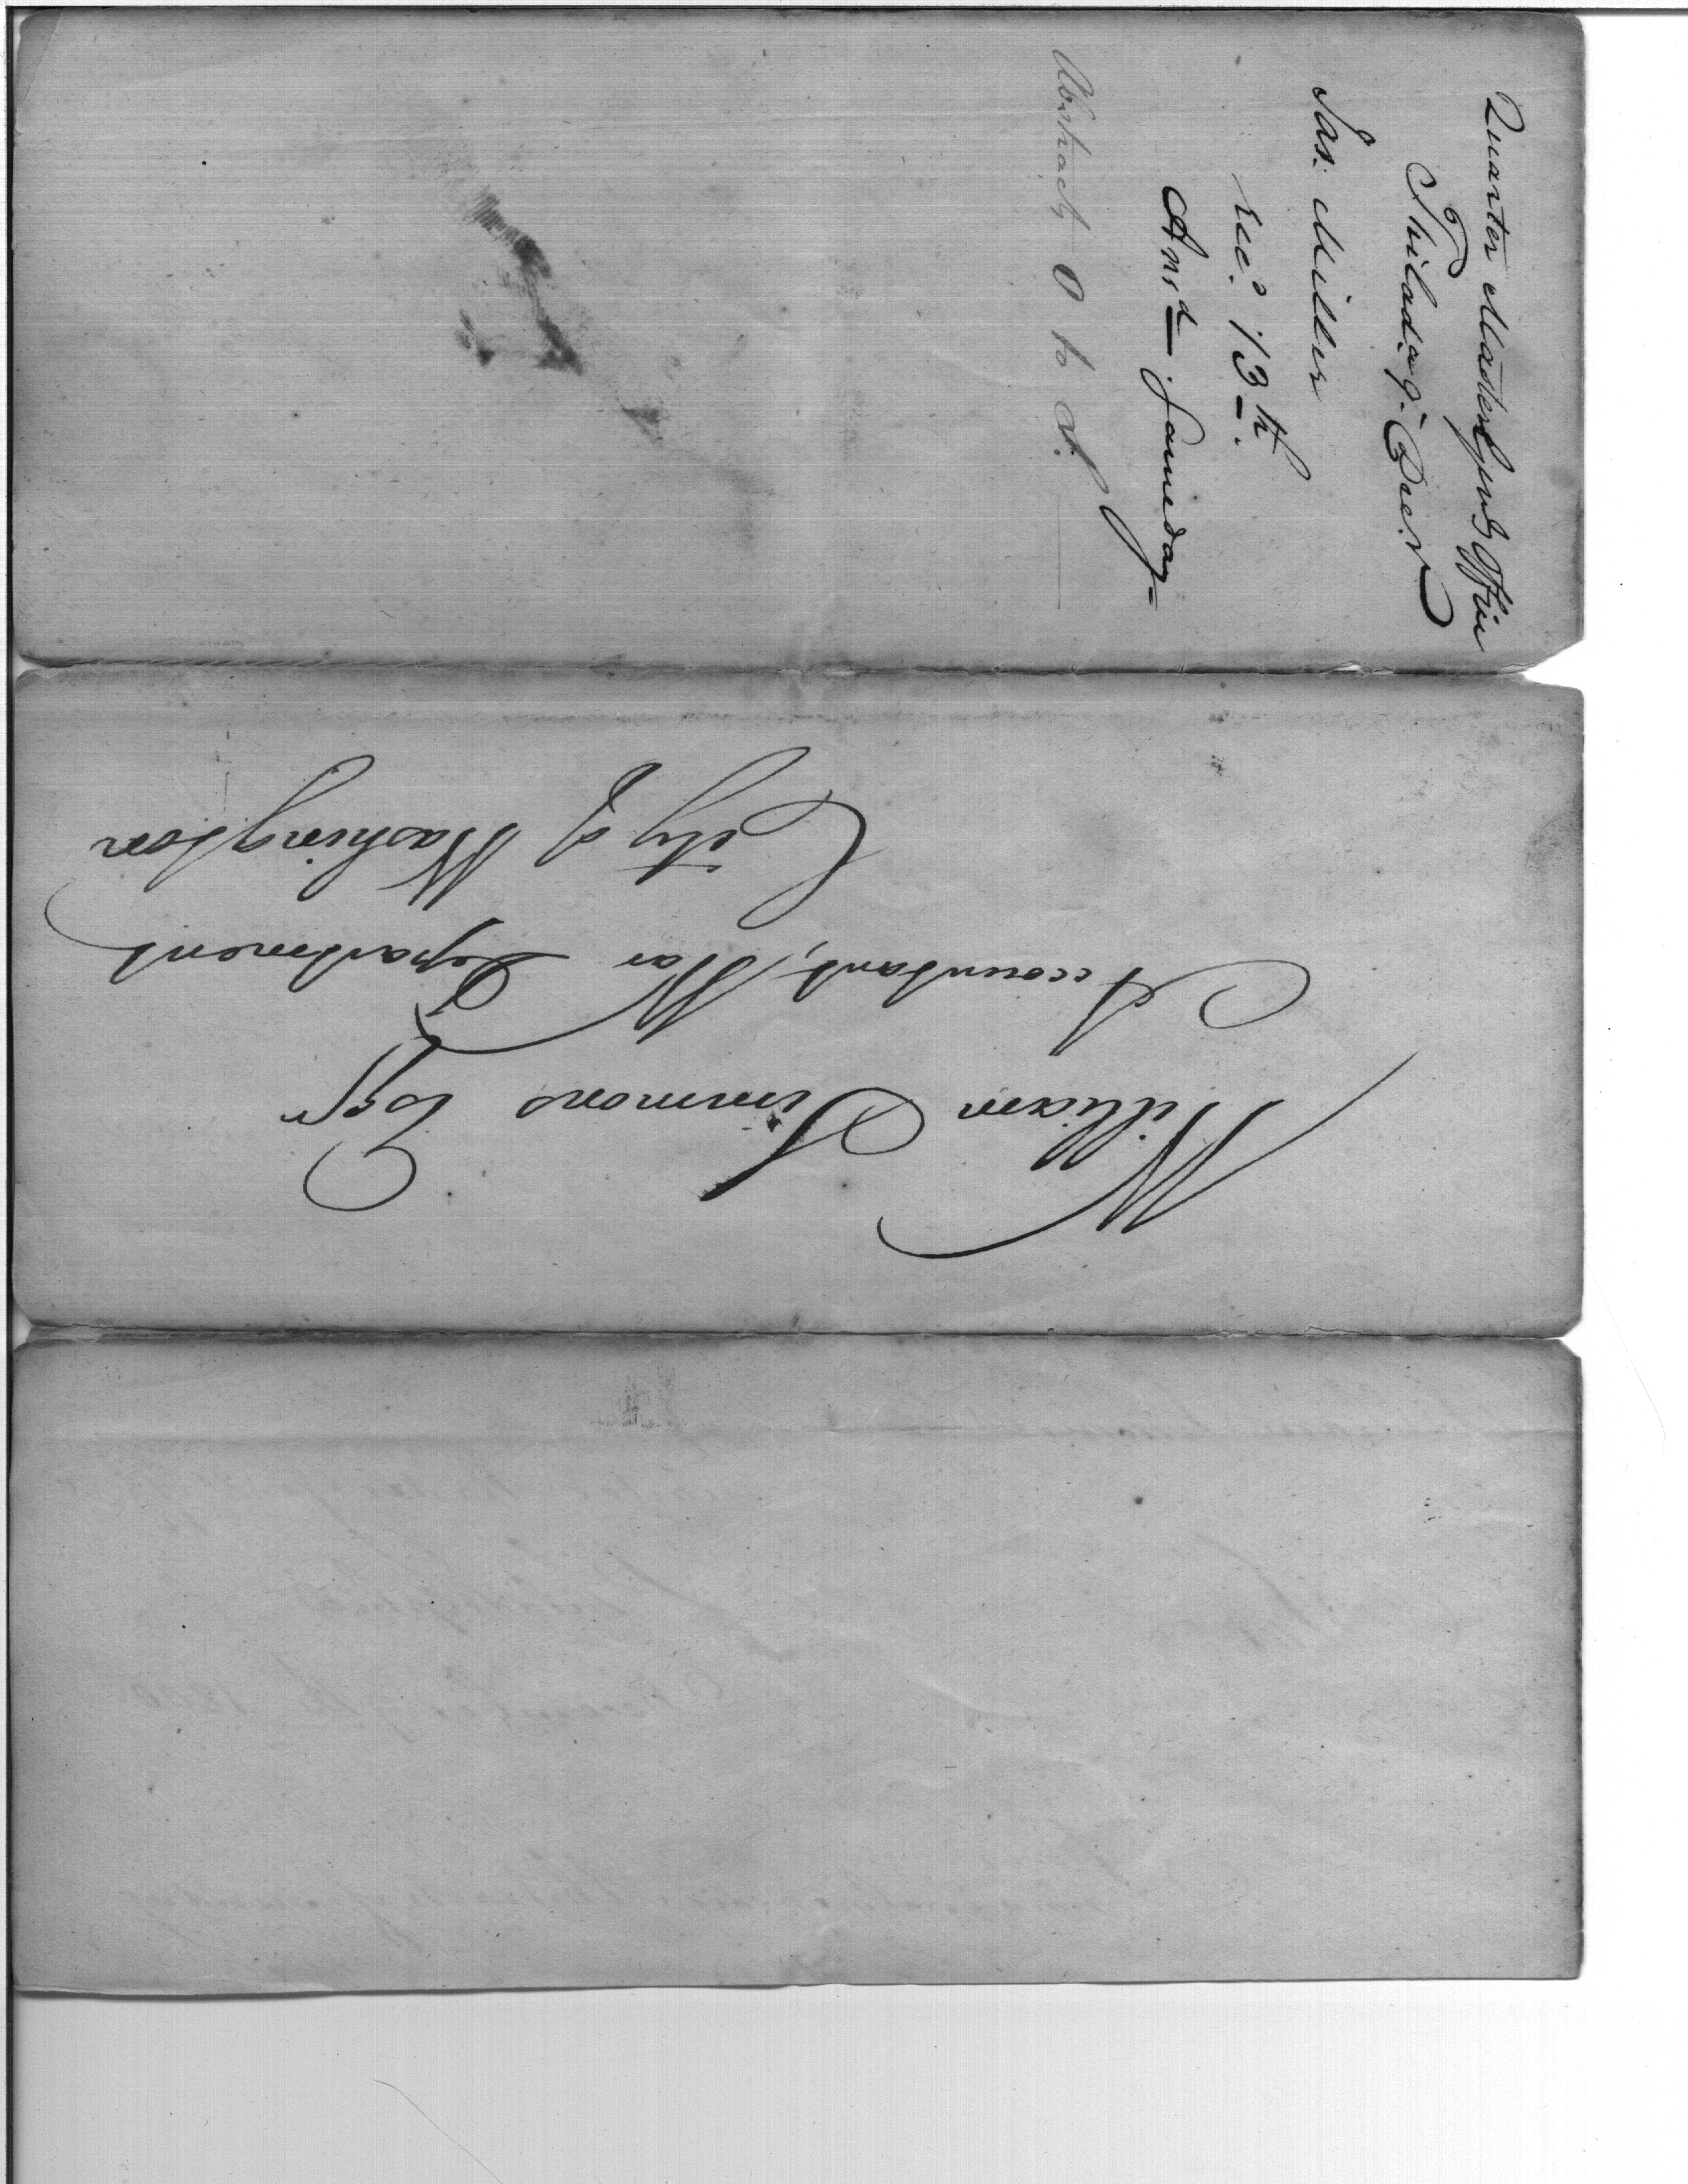 Quarter Masterjenl Office
Philada. 9. Decr
Jas. Miller
recd. 13th.
Ansd same day
Abstracts O to
William Simmons Esqr
Accountant, War Department
City of Washington